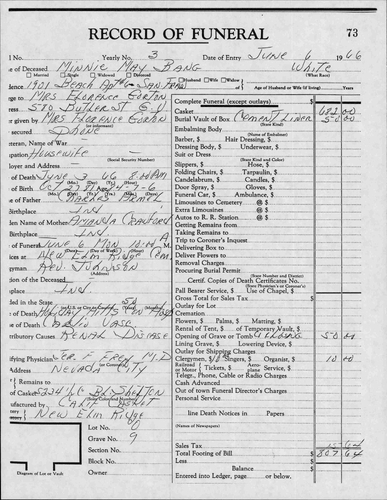 RECORD OF FUNERAL 73
l No. Yearly No. 3 Date of Entry JUNE 6 1966
e of Deceased MINNIE MAY BANG WHITE
Married Single Widowed Divorced Husband Wife Widow (What Race)
of Age of Husband or Wife (if living) Years
ence 1901 BEACH
ge to MRS FLORENCE GORTON
ess
r given by MRS FLORENCE GORTON
secured PHONE
eteran, Name of War
upation HOUSEWIFE (Social Security Number)
loyer and Address
of Death JUNE 3 66
e of Father
Birthplace IND
den Name of Mother AMANDA CRAWFORD
Birthplace IND
of Funeral JUNE 6 MON 10:00 A M.
ices at NEW ELM RIDGE CEM
gyman REV. JOHNSON
ion of the Deceased
place IND
ided in the State
of Death
e of Death CARDIO VASC
tributory Causes RENAL DISEASE
ifying Physician M.D.
Address NEVADA CITY
Remains to
of Casket
ufactured by CASKET
NEW ELM RIDGE
Lot No. 0
Grave No. 9
Section No.
Block No.
Owner
Diagram of Lot or Vault
Complete Funeral (except outlays) $ 682 00
Burial Vault or Box CEMENT LINER 50 00
(State Kind)
Embalming Body
(Name of Embalmer)
Barber, $ Hair Dressing, $
Dressing Body, $ Underwear, $
Suit or Dress
(State Kind and Color)
Slippers, $ Hose, $
Folding Chairs, $ Tarpaulin, $
Candelabrum, $ Candles, $
Door Spray, $ Gloves, $
Funeral Car, $ Ambulance, $
Limousines to Cemetery @ $
Extra Limousines @ $
Autos to R. R. Station @ $
Getting Remains from
Taking Remains to
Trip to Coroner's Inquest
Delivering Box to
Deliver Flowers to
Removal Charges
Procuring Burial Permit
(State Number and District)
Certif. Copies of Death Certificates No.
Pall Bearer Service, $ Use of Chapel, $
Gross Total for Sales Tax $
Outlay for Lot
Cremation
Flowers, $ Palms, $ Matting, $
Rental of Tent, $ of Temporary Vault, $
Opening of Grave or Tomb 50 00
Lining Grave, $ Lowering Device, $
Outlay for Shipping Charges
Clergymen, $10 Singers, $ Organist, $ 10 00
Railroad or Motor Tickets, $ Aeroplane Service, $
Telegr., Phone, Cable or Radio Charges
Cash Advanced
Out of town Funeral Director's Charges
Personal Service
line Death Notices in Papers
(Names of Newspapers)
Sales Tax 64
Total Footing of Bill $ 807 64
Less $
Balance $
Entered into Ledger, page or below.